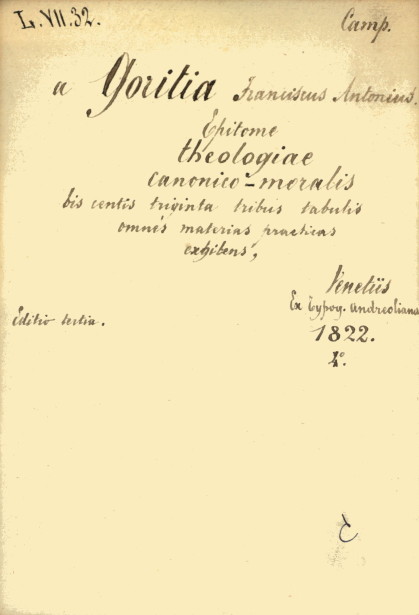 L.VII.32. Camp.
a Goritia Franciscus Antonius.
Epitome
theologiae
canonico-moralis
bis centis triginta tribus tabulis
omnes materias practicas
exhibens,
Venetiis
Ex typog. Andreoliana
Editio tertia.
1822.
4°.